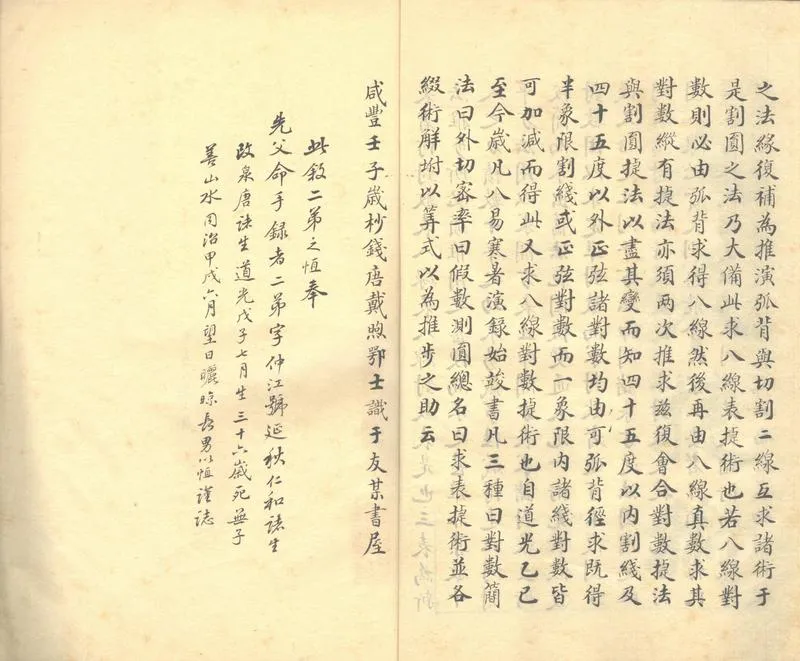 之法緣復補為推演弧背與切割二線互求諸術于
是割圓之法乃大備此求八線表捷術也若八線對
數則必由弧背求得八線然後再由八線真數求其
對數縱有捷法亦須兩次推求茲復會合對數捷法
與割圓捷法以盡其變而知四十五度以內割綫及
四十五度以外正弦諸對數均由可弧背徑求既得
半象限割綫或正弦對數而一象限內諸綫對數皆
可加減而得此又求八線對數捷術也自道光乙巳
至今歲凡八易寒暑演錄始竣書凡三種曰對數簡
法曰外切密率曰假數測圓總名曰求表捷術並各
綴術解坿以筭式以為推步之助云
咸豐壬子歲杪錢唐戴煦鄂士識于友某書屋
此敘二弟之恒奉
先父命手錄者二弟字仲江號延秋仁和諸生
改泉唐諸生道光戊子七月生三十六歲死無子
善山水同治甲戌六月望日曬晾長男以恒謹誌